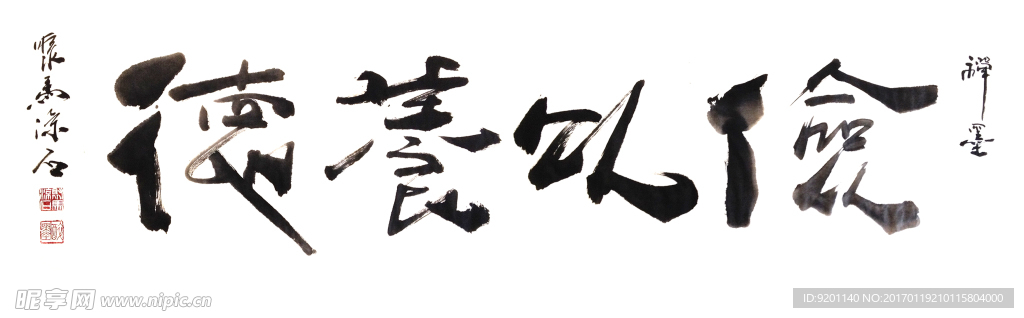 禪墨
儉以養德
昵享网 www.nipic.cn
ID:9201140 NO:20170119210115804000